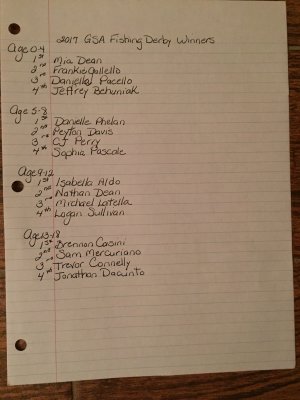 2017 GSA Fishing Derby Winners
Age 0-4
1st Mia Dean
2nd Frankie Gallello
3rd Daniella Pacello
4th Jeffrey Behuniak
Age 5-8
1st Danielle Phelan
2nd Peyton Davis
3rd CJ Perry
4th Sophia Pascale
Age 9-12
1st Isabella Aldo
2nd Nathan Dean
3rd Michael Latella
4th Logan Sullivan
Age 13-18
1st Brennon Casini
2nd Sam Mercuriano
3rd Trevor Connelly
4th Jonathan Dacunto